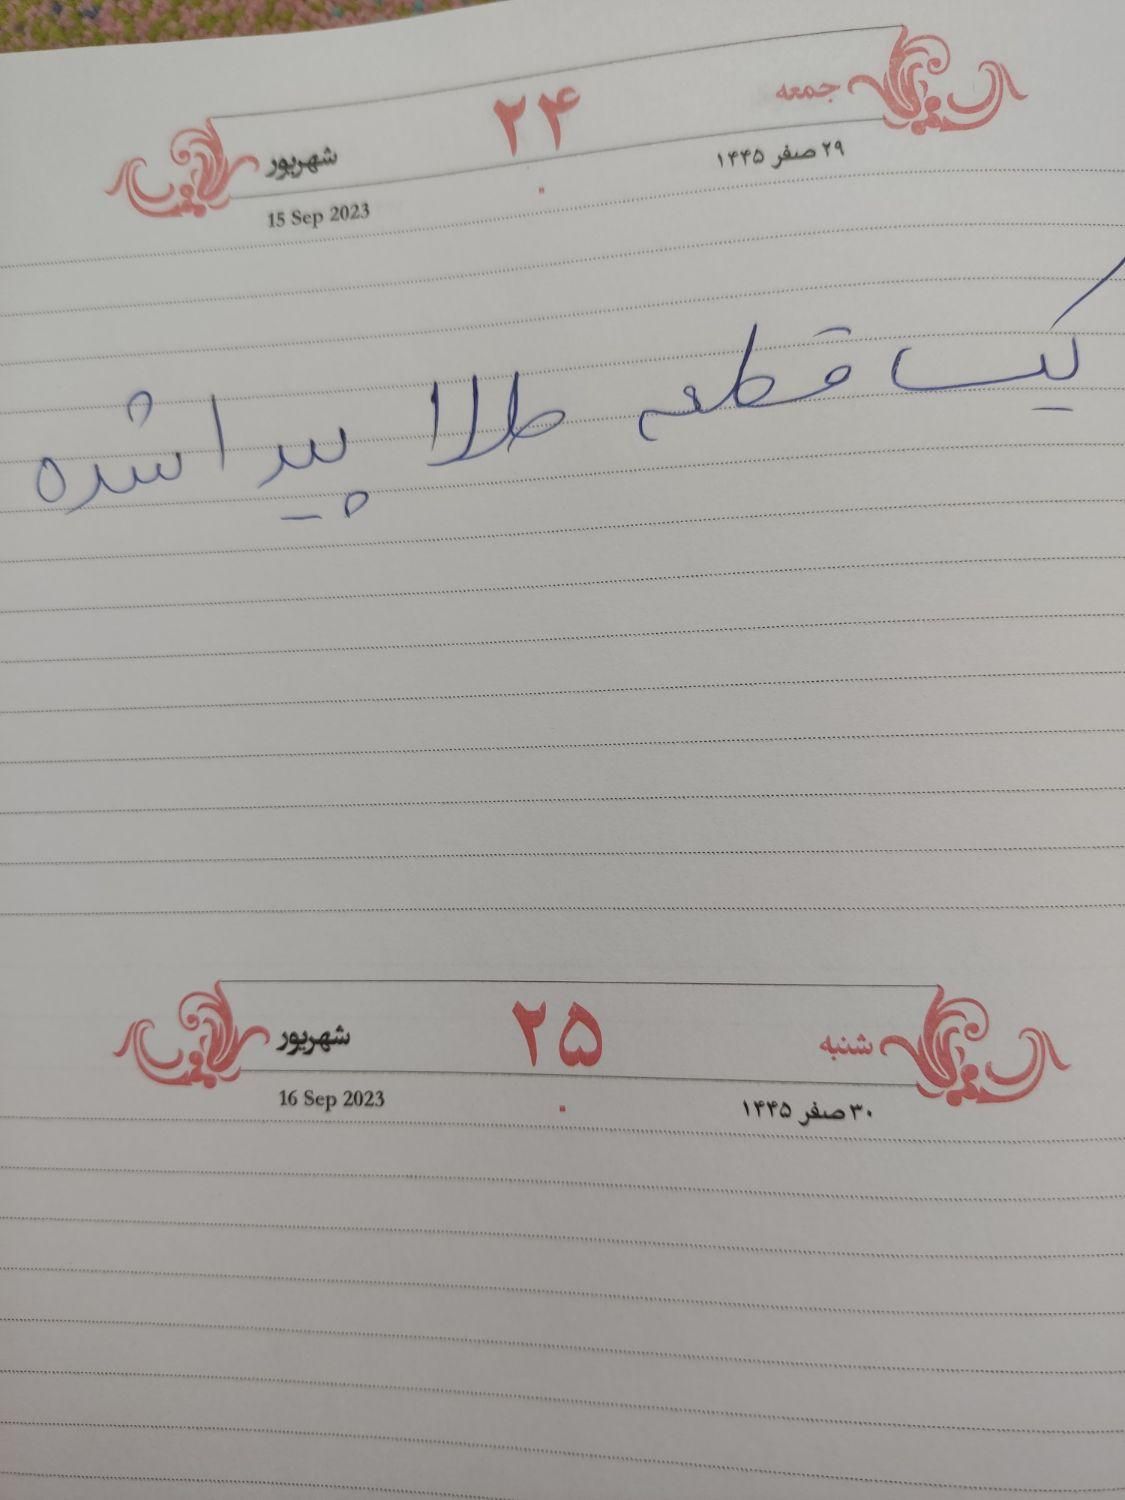 جمعه ۲۴ شهریور
۲۹ صفر ۱۴۴۵ 15 Sep 2023
یک قطعه طلا پیدا شده
شنبه ۲۵ شهریور
۳۰ صفر ۱۴۴۵ 16 Sep 2023